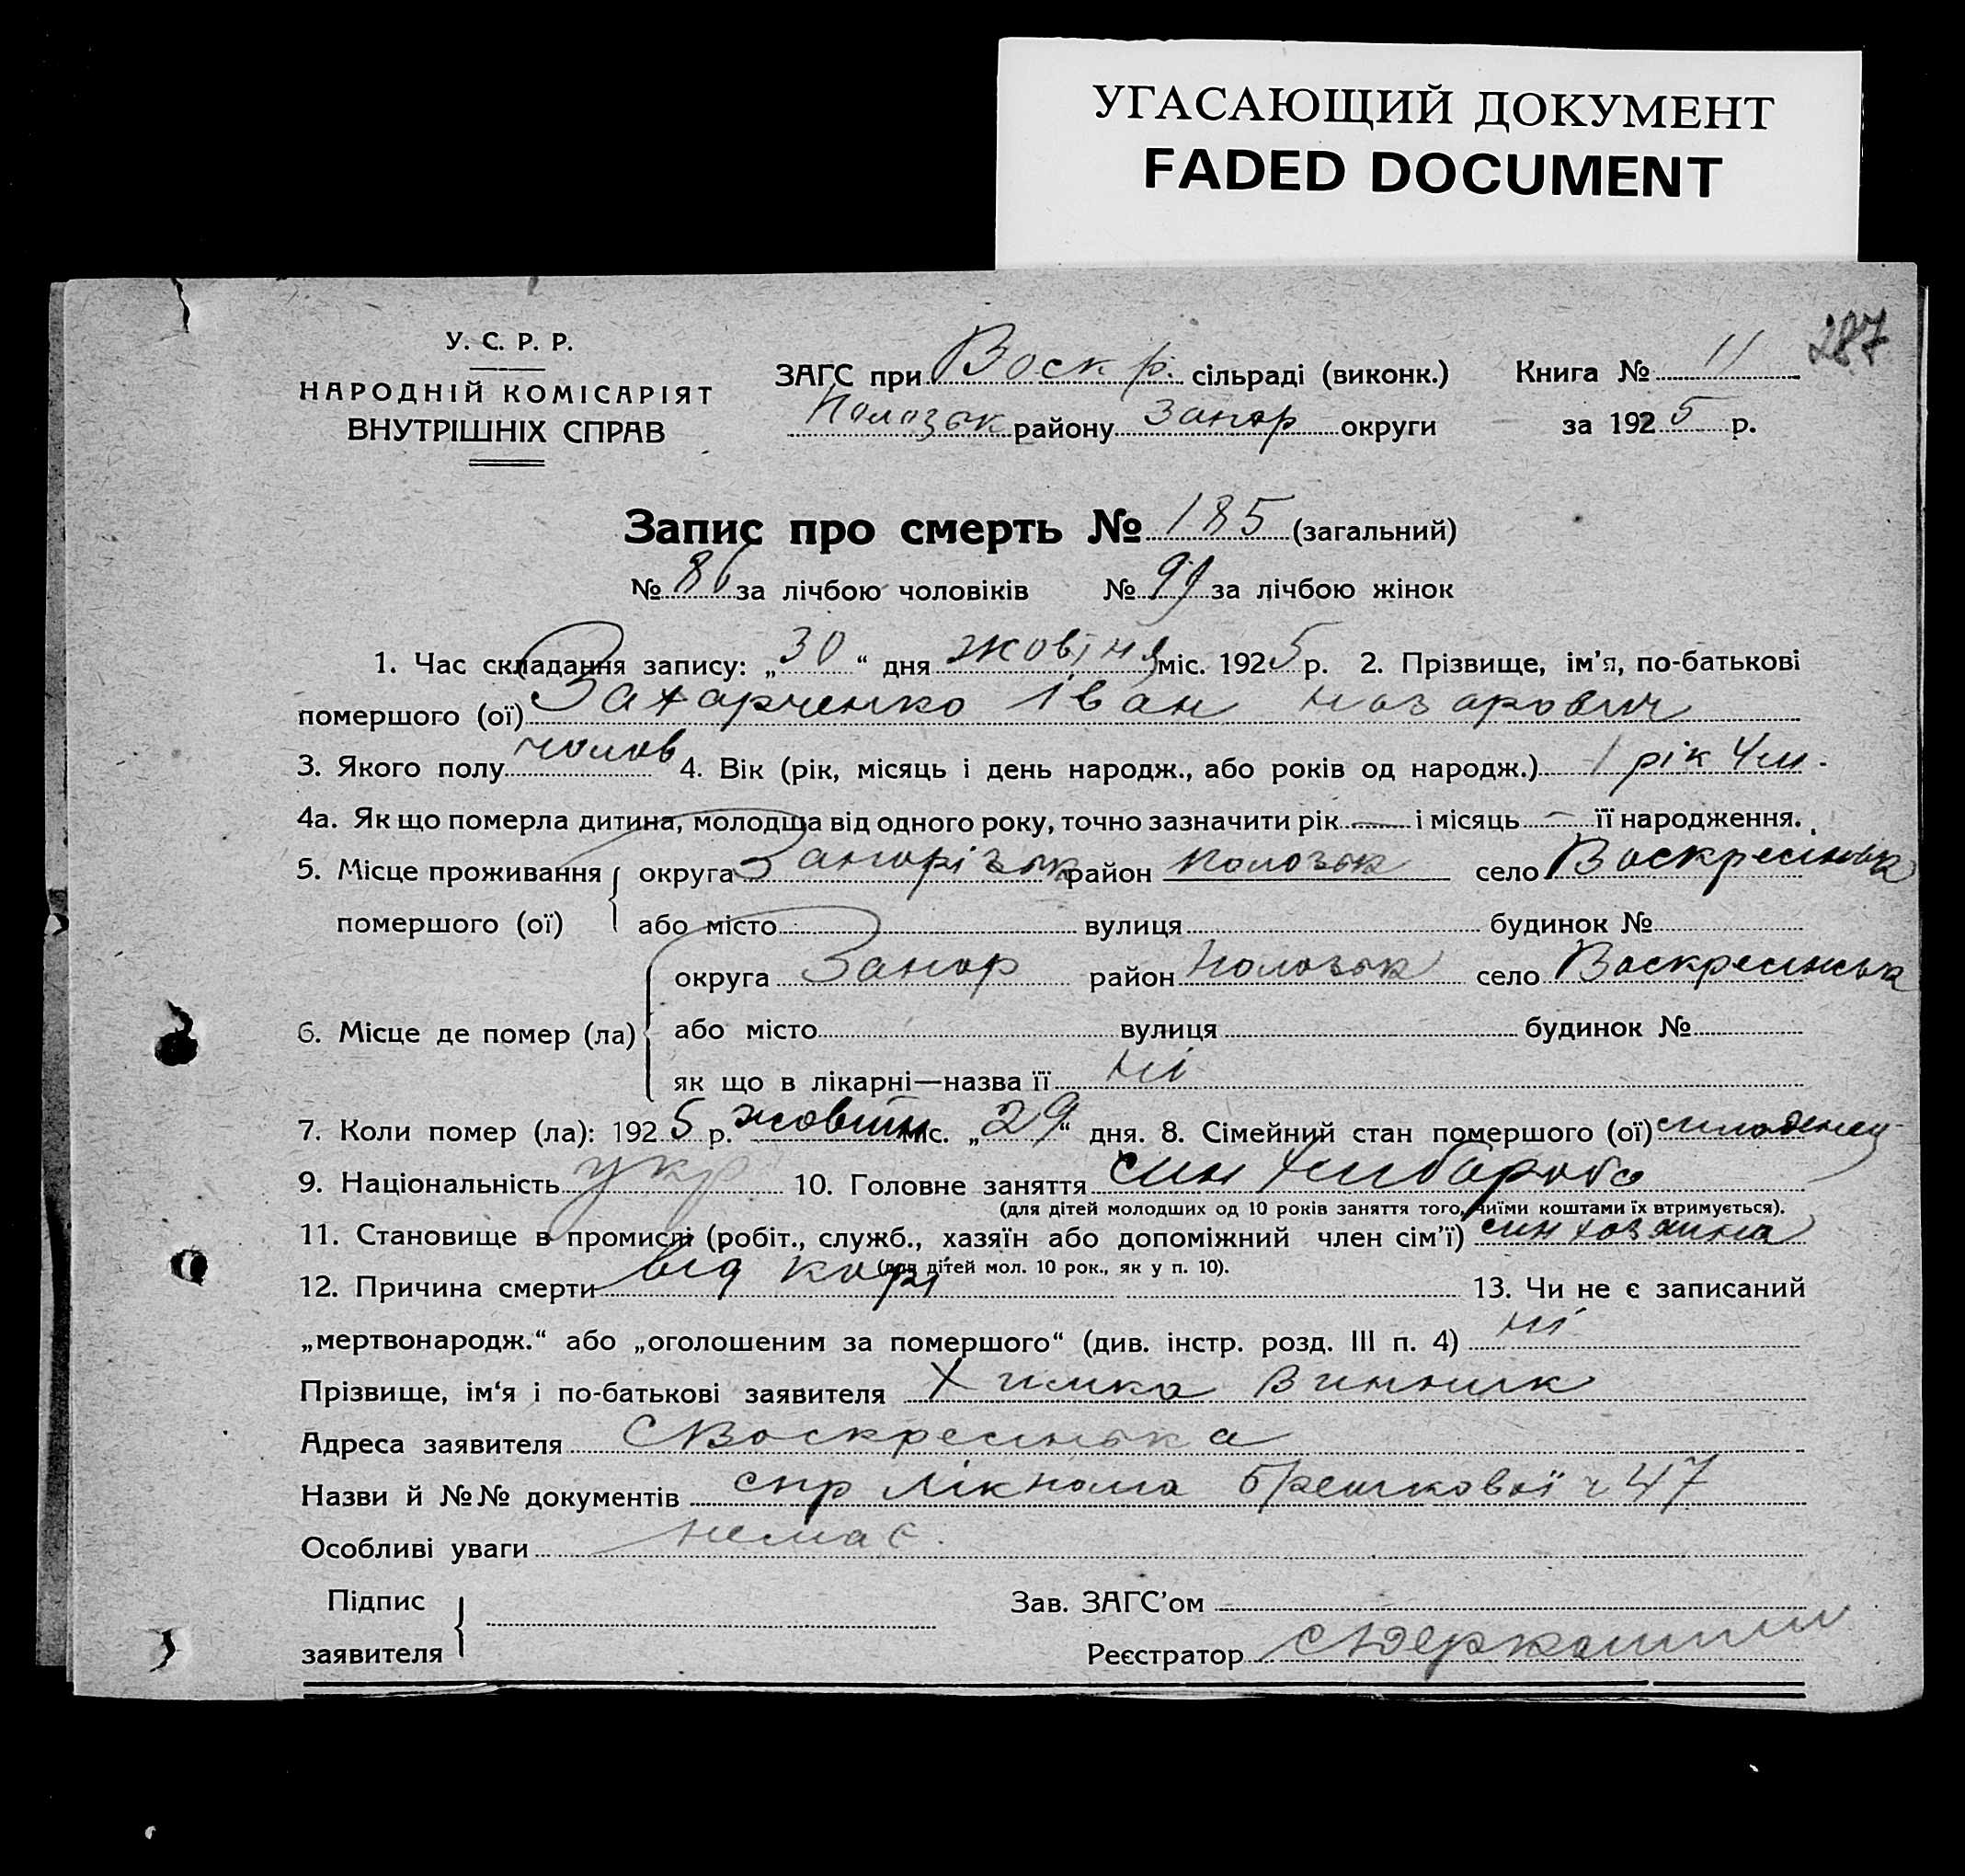 УГАСАЮЩИЙ ДОКУМЕНТ
FADED DOCUMENT
287
У. С. Р. Р.
НАРОДНІЙ КОМІСАРІЯТ
ВНУТРІШНІХ СПРАВ
ЗАГС при Воскр. сільраді (виконк.) Книга № 11
Полозьк району Запор округи за 1925 р.
Запис про смерть № 185 (загальний)
№ 86 за лічбою чоловіків № 99 за лічбою жінок
1. Час складання запису: „30“ дня жовтня міс. 1925 р. 2. Прізвище, ім’я, по-батькові
помершого (ої) Захарченко Іван Назарович
3. Якого полу чолов 4. Вік (рік, місяць і день народж., або років од народж.) 1 рік 4 м.
4а. Як що померла дитина, молодща від одного року, точно зазначити рік — і місяць — її народження.
5. Місце проживання округа Запорізьк район Полозьк село Воскресенька
помершого (ої) або місто вулиця будинок №
округа Запор район Полозьк село Воскресенська
6. Місце де помер (ла) або місто вулиця будинок №
як що в лікарні—назва її ні
7. Коли помер (ла): 1925 р. жовтн міс. „29“ дня. 8. Сімейний стан помершого (ої) младенец
9. Національність укр 10. Головне заняття син хлібороба
(для дітей молодших од 10 років заняття того, чиїми коштами їх втримується).
11. Становище в промислі (робіт., служб., хазяїн або допоміжний член сім’ї) син хозяина
(для дітей мол. 10 рок., як у п. 10).
12. Причина смерти від корі 13. Чи не є записаний
„мертвонародж.“ або „оголошеним за помершого“ (див. інстр. розд. III п. 4) ні
Прізвище, ім‘я і по-батькові заявителя Химка Винник
Адреса заявителя С Воскресенька
Назви й №№ документів спр Лікпома 47
Особливі уваги немає.
Підпис Зав. ЗАГС’ом
заявителя Реєстратор